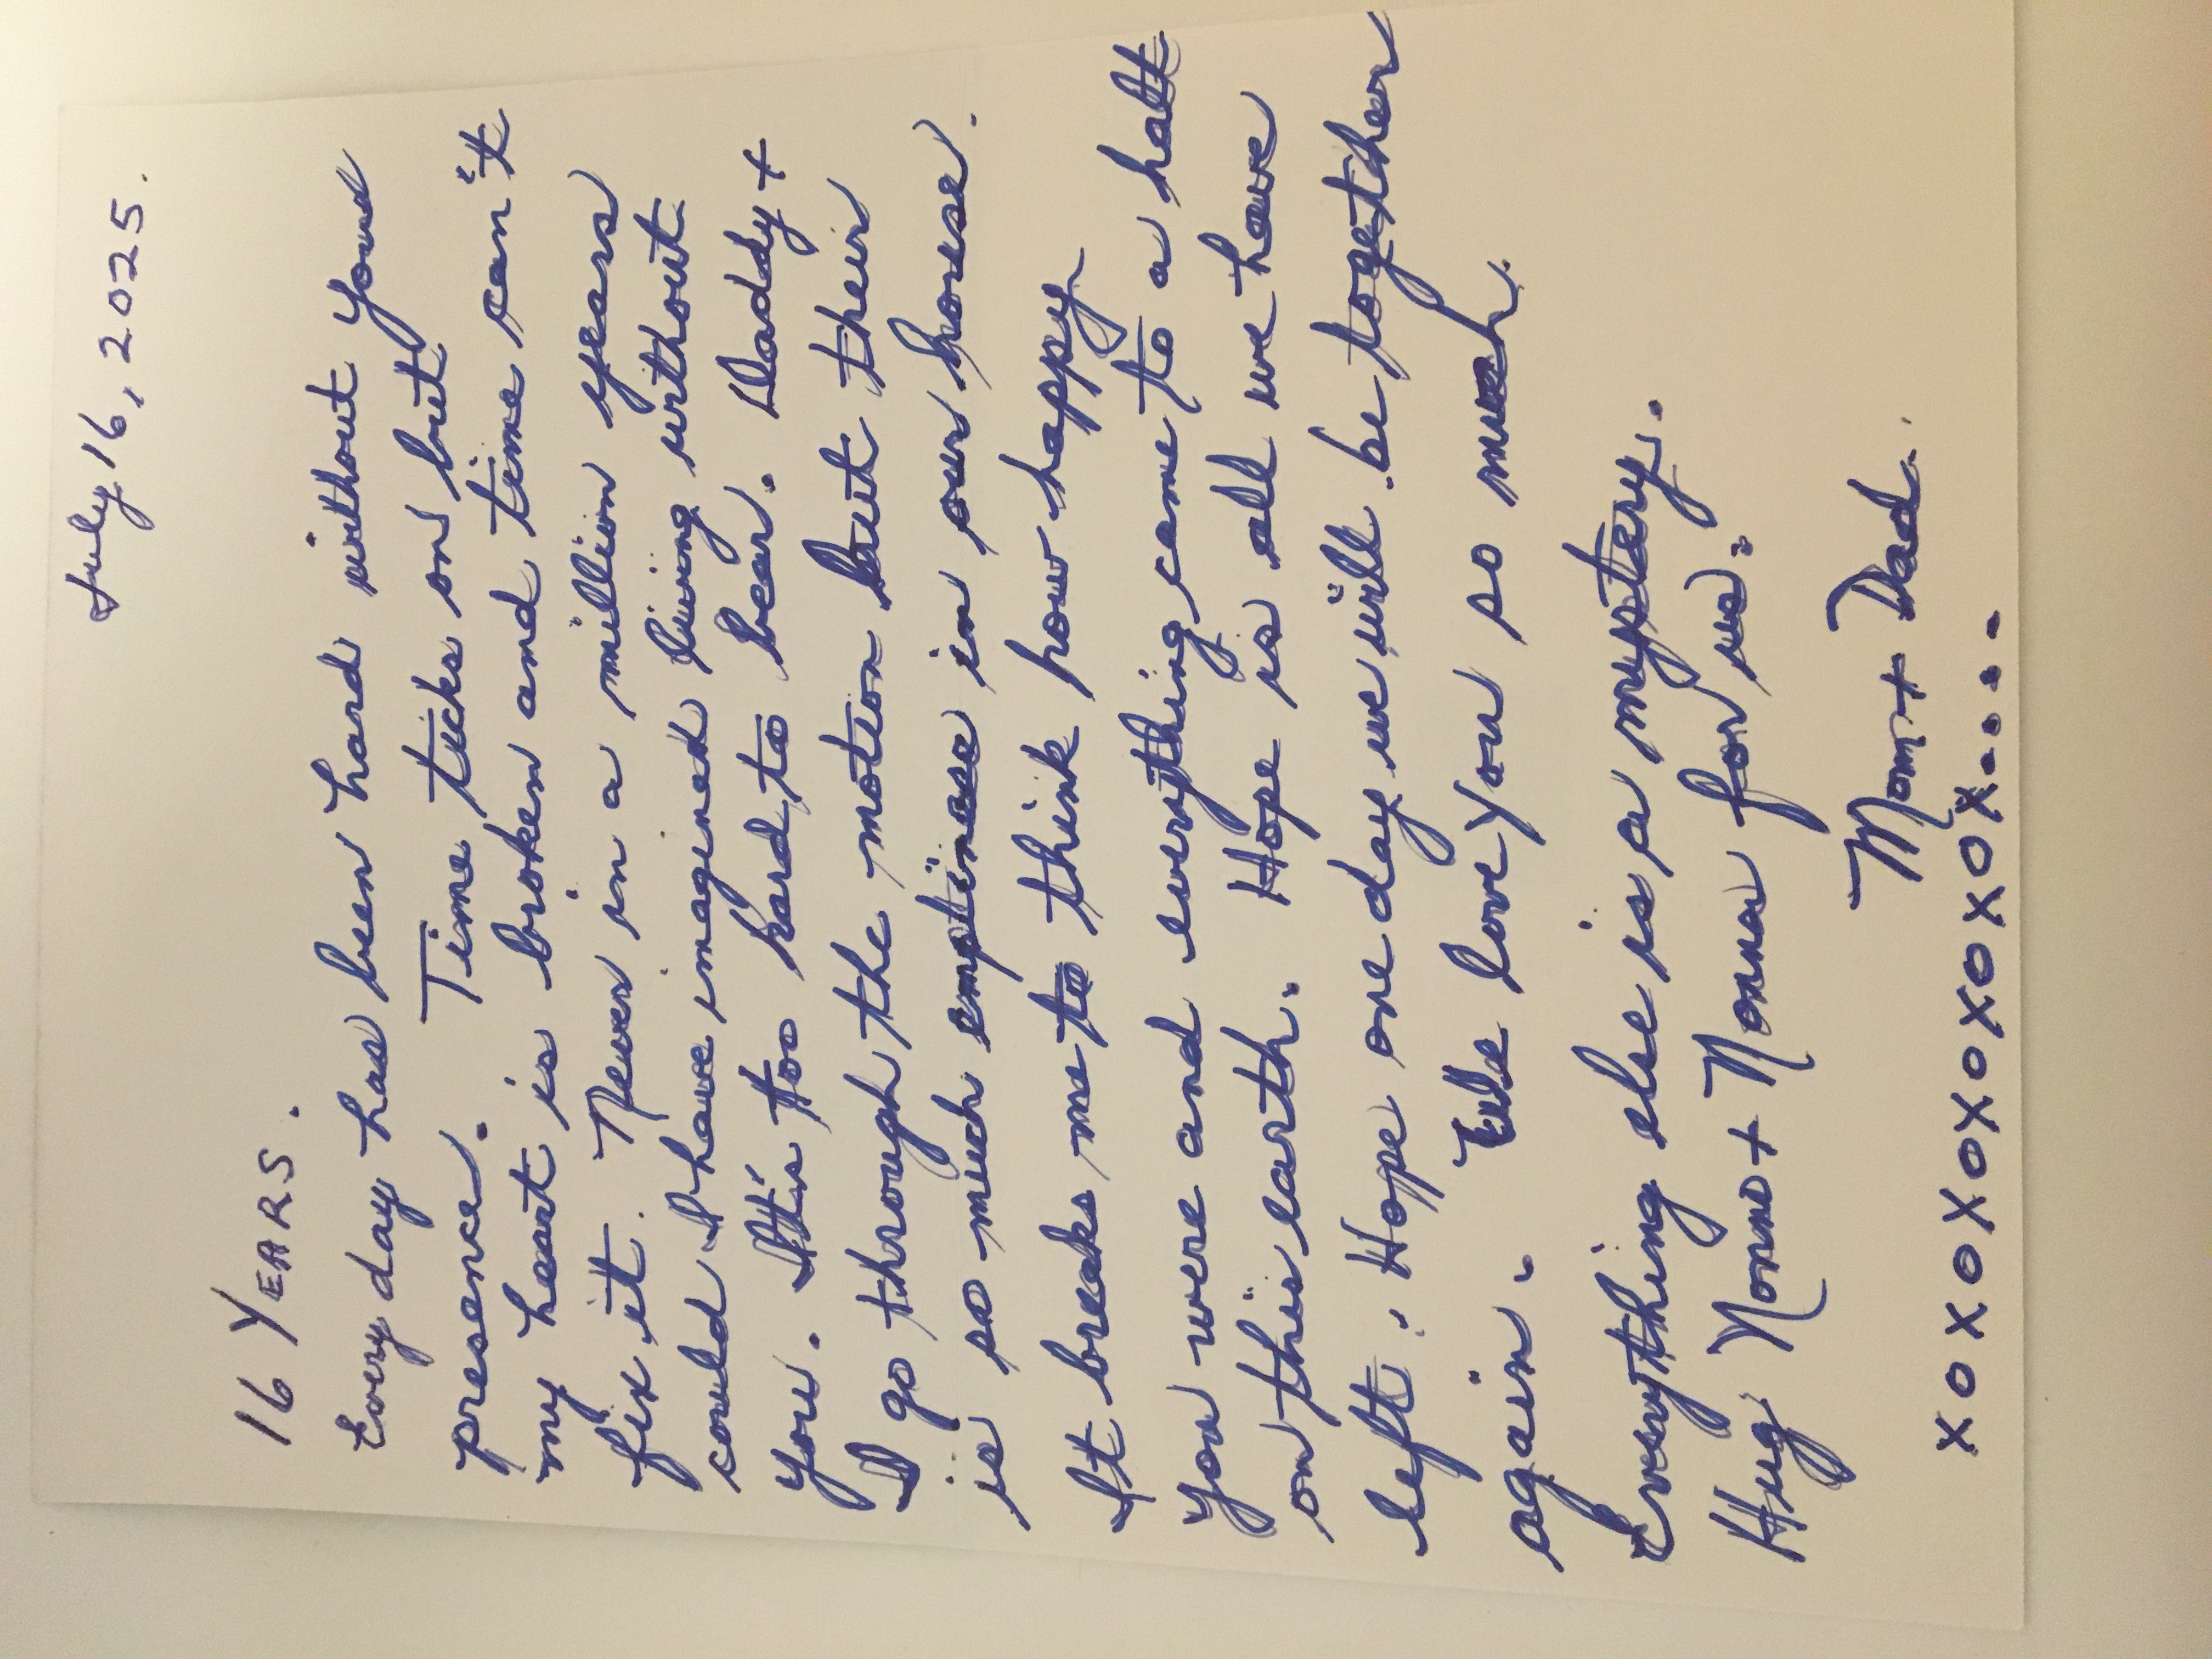 July 16, 2025.
16 YEARS.
Every day has been hard without your
presence. Time ticks on but
my heart is broken and time can't
fix it. Never in a million years
could I have imagined living without
you. It's too hard to bear. Daddy +
I go through the motion but their
is so much emptiness in our house.
It breaks me to think how happy
you were and everything came to a halt
on this earth. Hope is all we have
left. Hope one day we will be together
again. We love you so much.
Everything else is a mystery.
Hug Nonno + Nonna for us.
Mom + Dad.
xoxoxoxoxoxox....